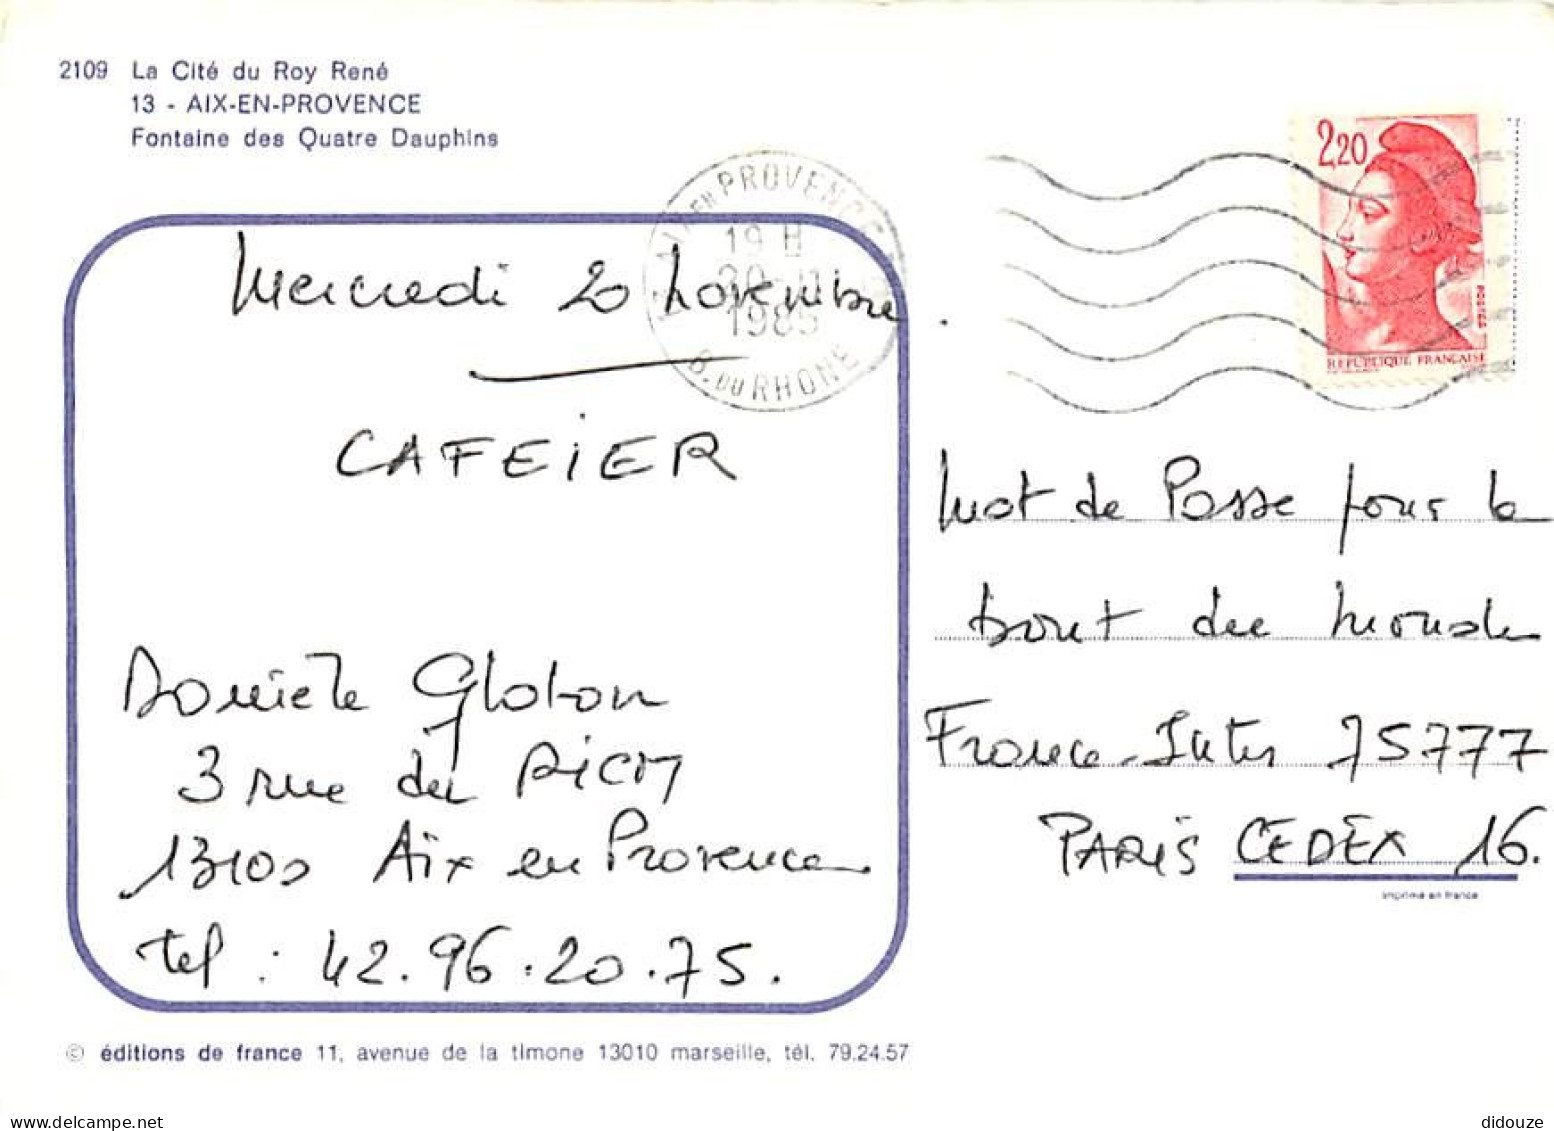 2109 La Cité du Roy René
13 - AIX-EN-PROVENCE
Fontaine des Quatre Dauphins
EN PROVENCE
19 H
20-11
1985
B. DU RHONE
2,20
POSTES
REPUBLIQUE FRANÇAISE
Mercredi 20 novembre.
CAFEIER
Danièle Globon
3 rue du
13100 Aix en Provence
tel : 42.96.20.75.
Mot de Passe pour le
bout du monde
France-Inter 75777
PARIS CEDEX 16.
imprimé en france
© éditions de france 11, avenue de la timone 13010 marseille, tél. 79.24.57
didouze